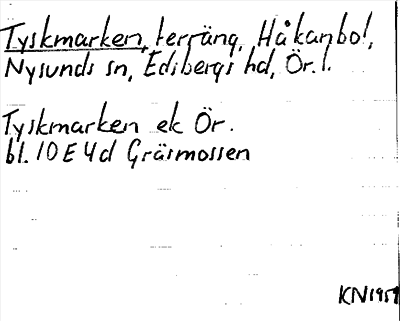 Tyskmarken, terräng, Håkanbol,
Nysunds sn, Edsbergs hd, Ör. l.
Tyskmarken ek Ör.
bl. 10 E 4d Gräsmossen
KN 1959